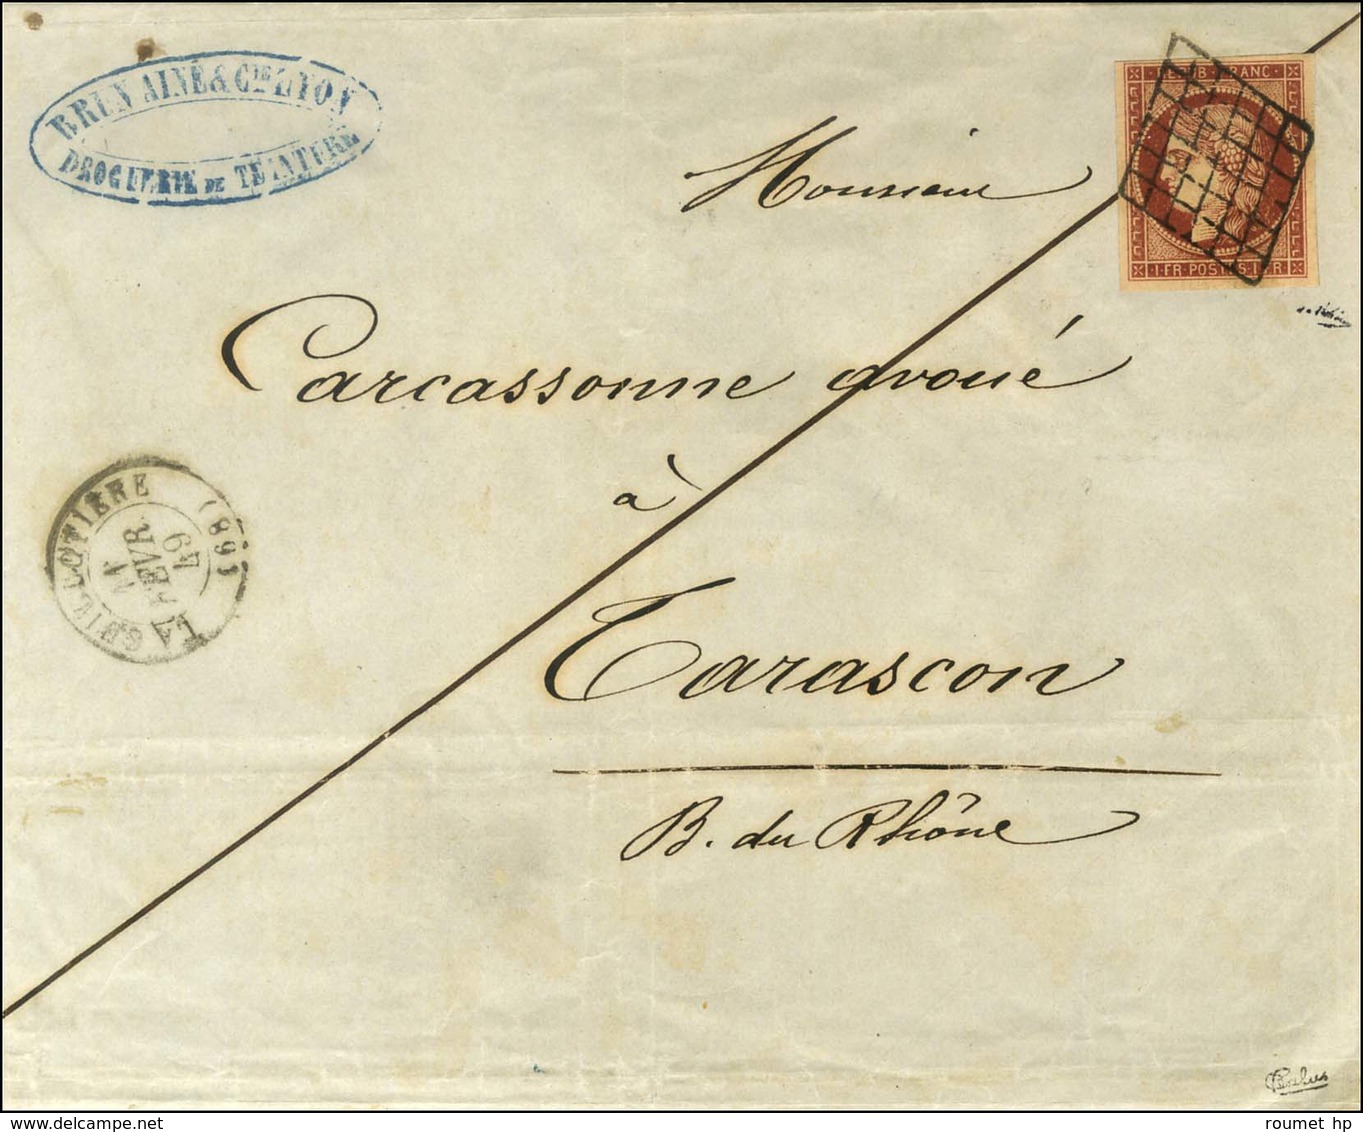 BRUN AINÉ & CIE LYON
DROGUERIE DE TEINTURE
REPUB FRANC
1 FR POSTES 1 FR
Monsieur
Carcassonne avoué
à
Tarascon
B. du Rhône
LA GUILLOTIÈRE (68)
11
FEVR.
49
roumet hp